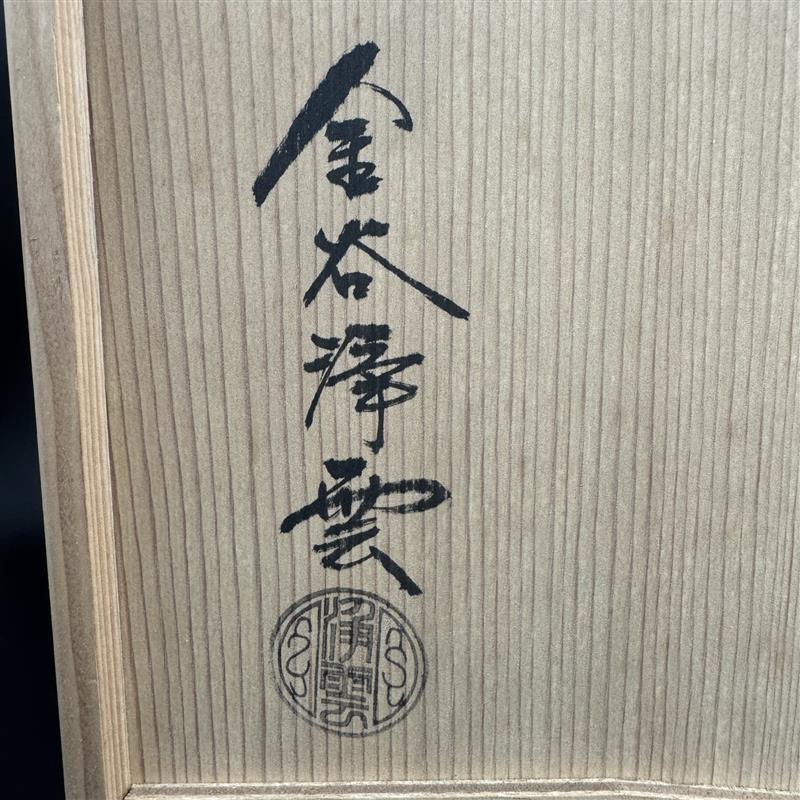 金谷浄雲
浄雲